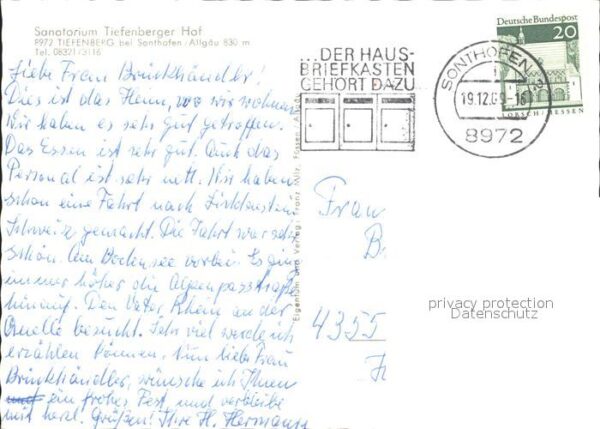 Sanatorium Tiefenberger Hof
8972 TIEFENBERG bei Sonthofen/Allgäu 830 m
Tel. 08321/3116
Liebe Frau Brückhändler!
Dies ist das Heim, wo wir wohnen
Wir haben es sehr gut getroffen.
Das Essen ist sehr gut. Auch das
Personal ist sehr nett. Wir haben
schon eine Fahrt nach Lichtenstein
Schweiz gemacht. Die Fahrt war sehr
schön. Am Bodensee vorbei. Es ging
immer höher die Alpenpasstraße
hinauf. Den Vater Rhein an der
Quelle besucht. Sehr viel werde ich
erzählen können. Nun liebe Frau
Brückhändler, wünsche ich Ihnen
ein frohes Fest, und verbleibe
mit herzl. Grüßen! Ihre H. Hermanns
Eigentum und Verlag: Franz Milz, Füssen/Allgäu
...DER HAUS-
BRIEFKASTEN
GEHÖRT DAZU
SONTHOFEN
19.12.69-16
8972
Deutsche Bundespost
20
LORSCH/HESSEN
Frau
B.
4355
privacy protection
Datenschutz